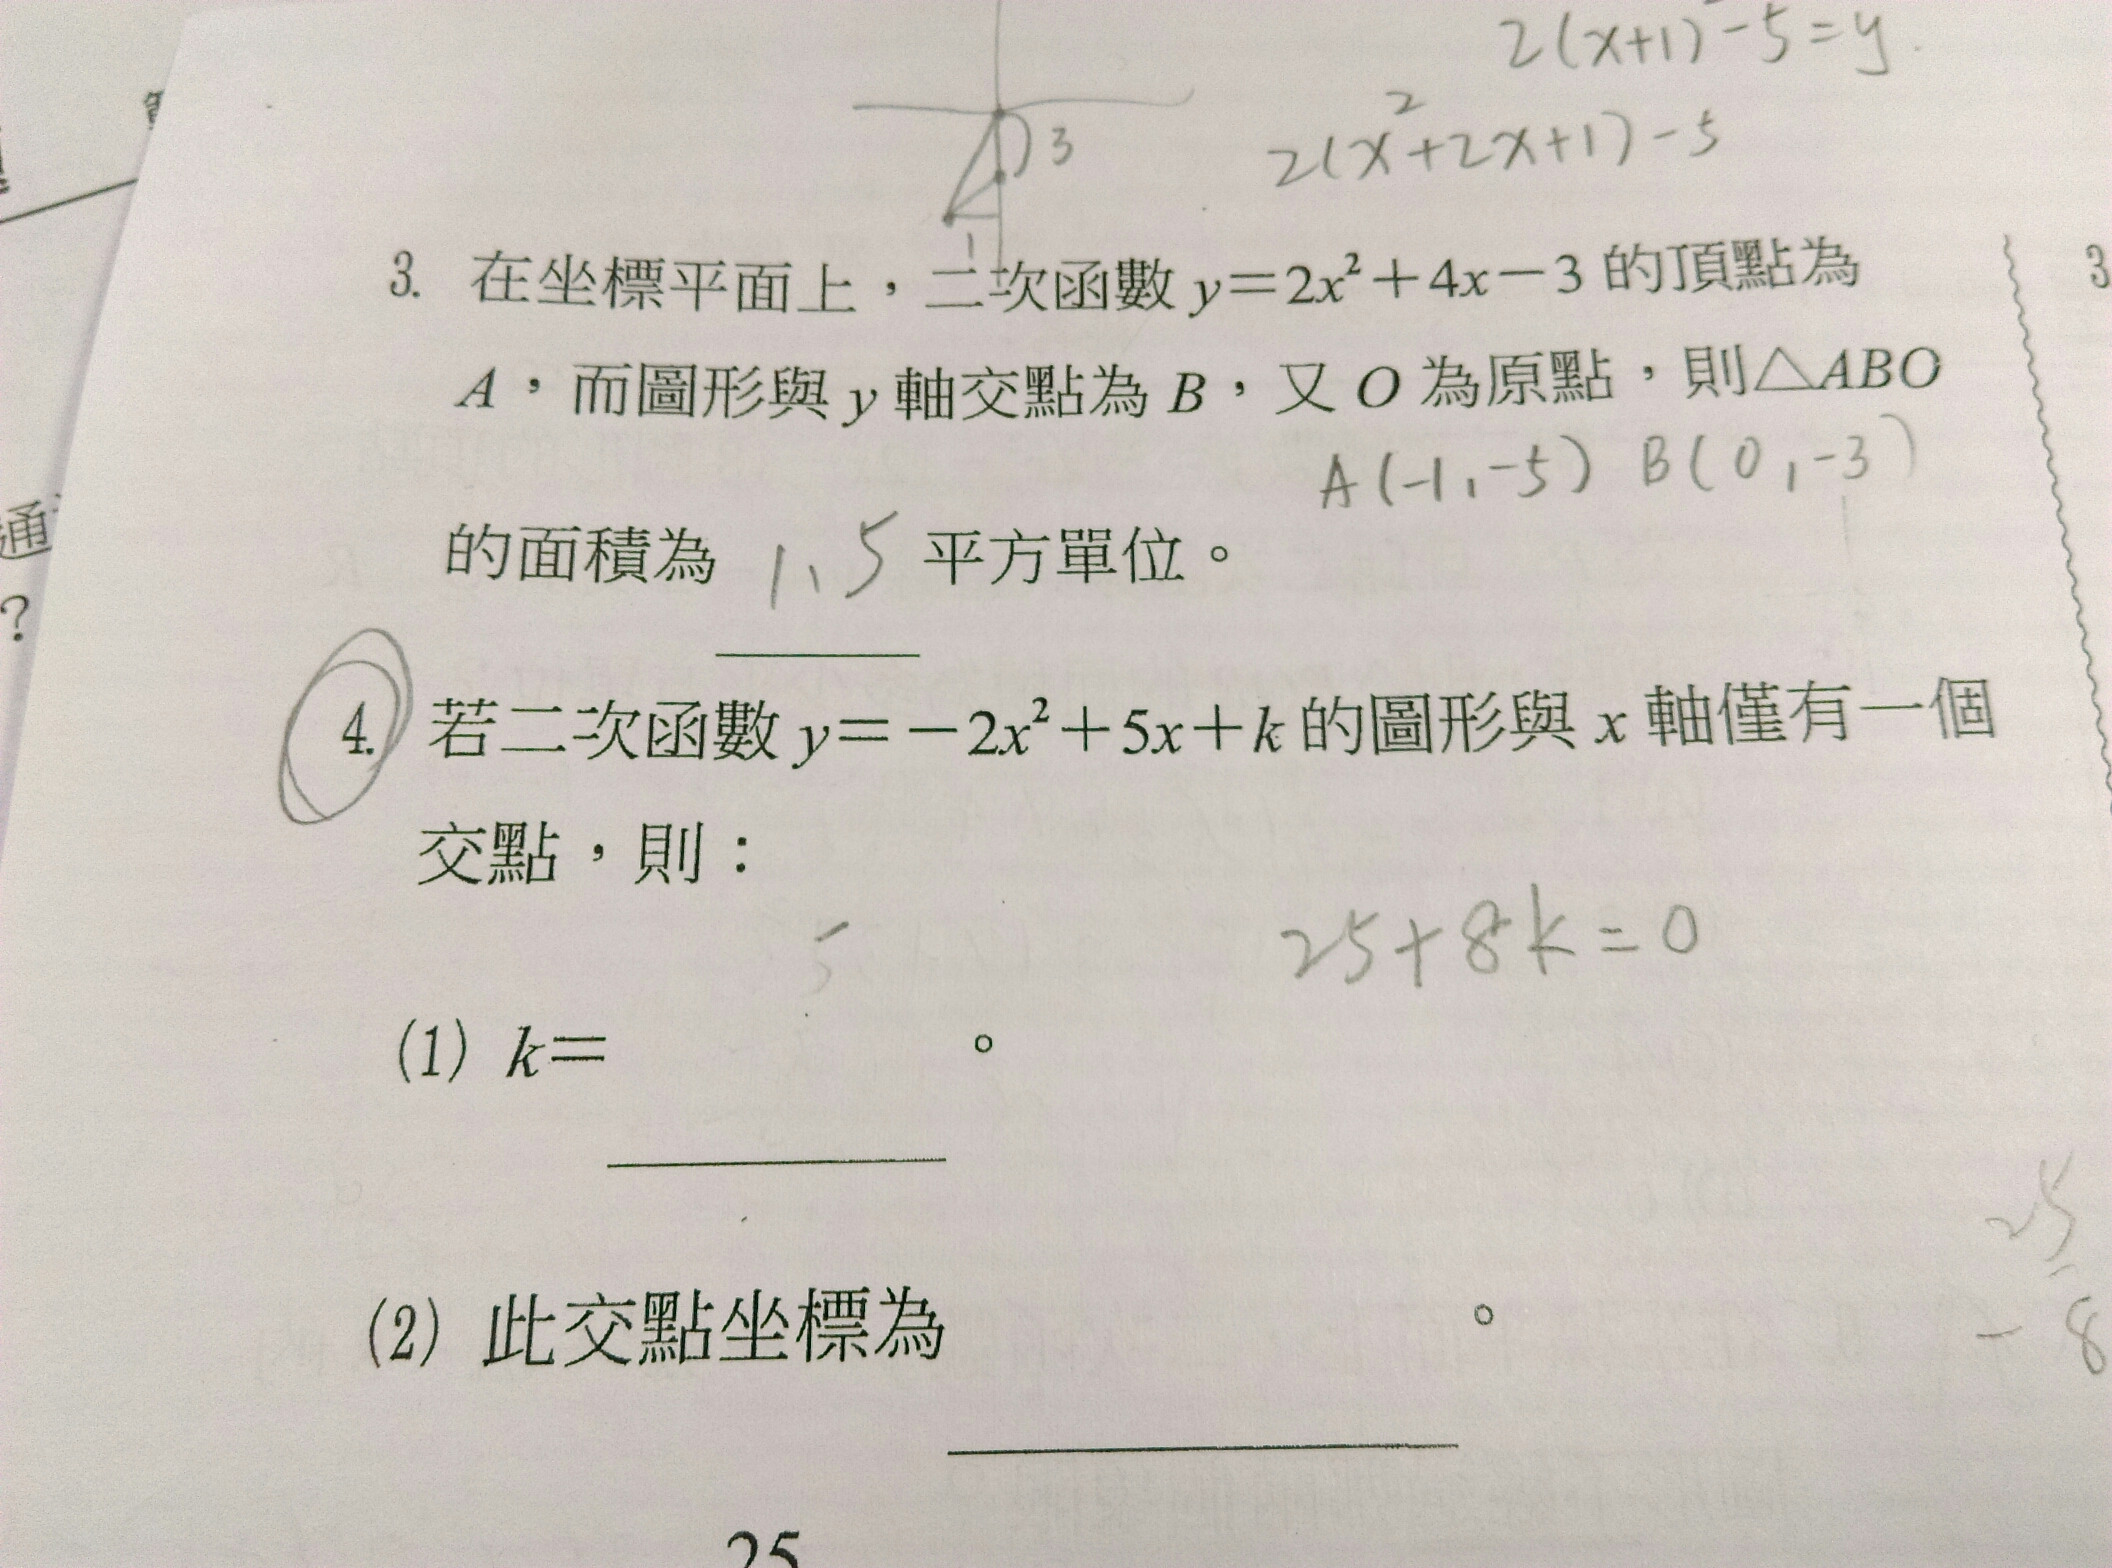 2(x+1)²-5=y
2(x²+2x+1)-5
3
1
3. 在坐標平面上，二次函數 y＝2x²＋4x－3 的頂點為
A，而圖形與 y 軸交點為 B，又 O 為原點，則△ABO
A(-1,-5) B(0,-3)
的面積為 1.5 平方單位。
4. 若二次函數 y＝－2x²＋5x＋k 的圖形與 x 軸僅有一個
交點，則：
25+8k=0
(1) k＝ 。
25
-8
(2) 此交點坐標為 。
25
3
通
?